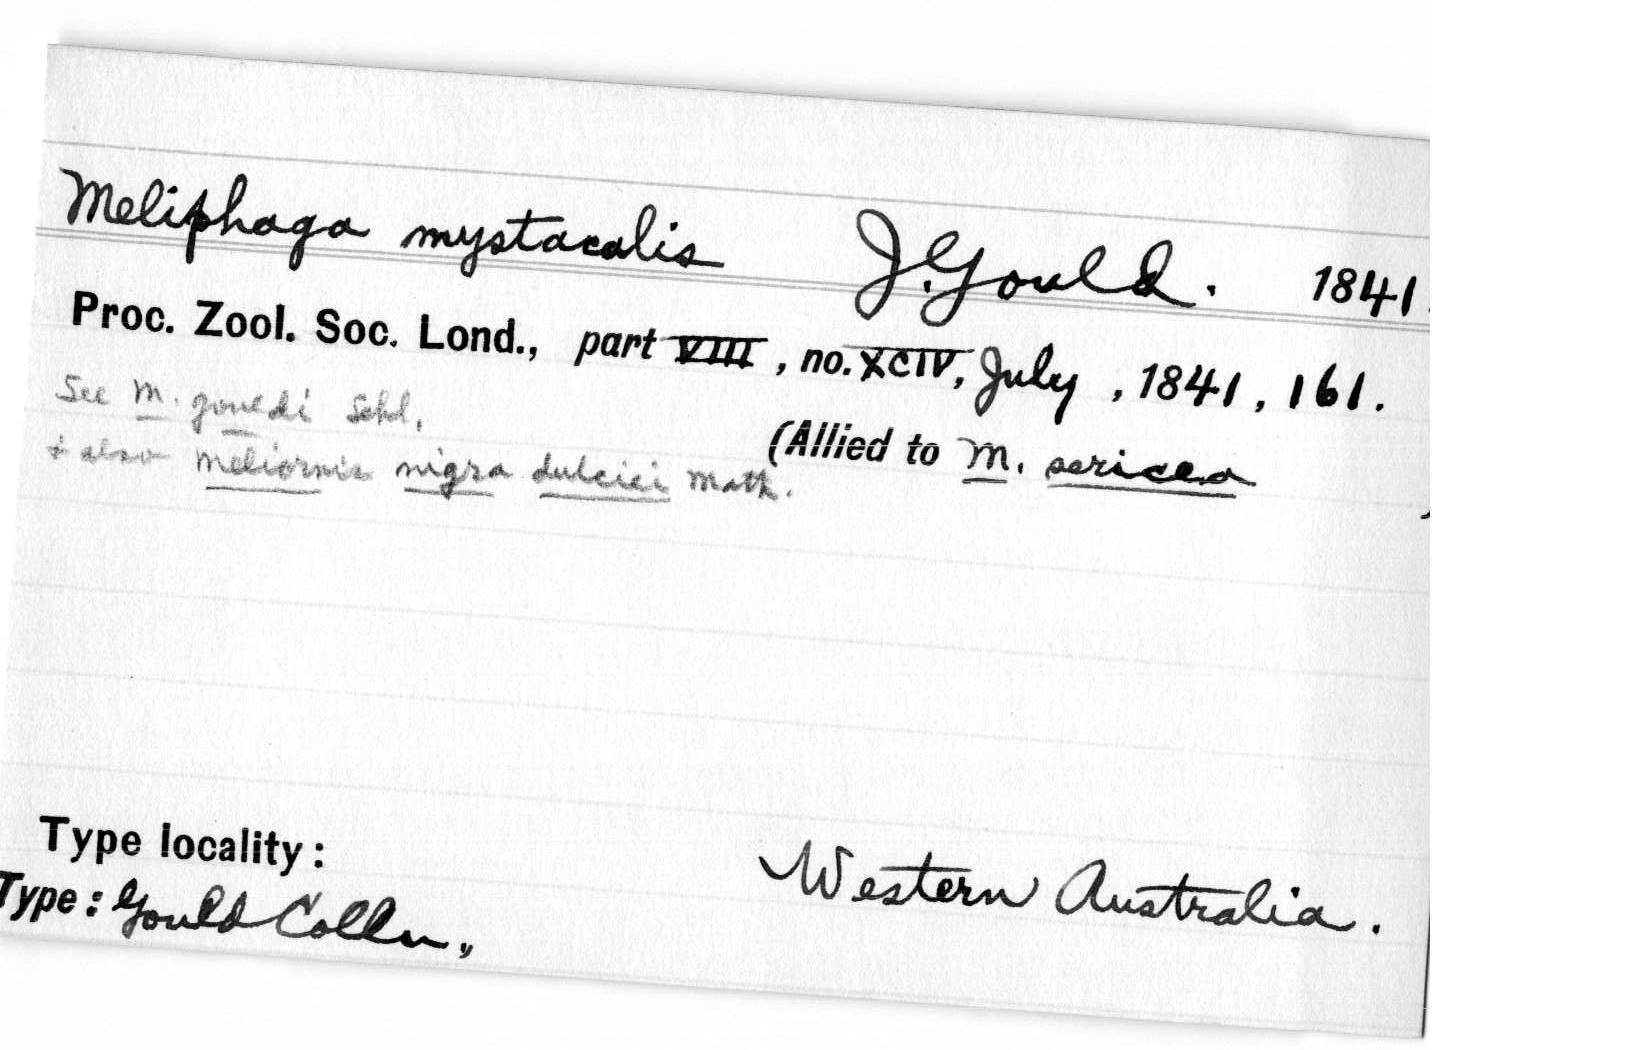 Meliphaga mystacalis J. Gould. 1841.
Proc. Zool. Soc. Lond., part VIII, no. XCIV, July, 1841, 161.
See M. gouldi Schl,
(Allied to M. sericea )
& also Meliornis nigra dulciei Math.
Type locality: Western Australia.
Type: Gould Colln,